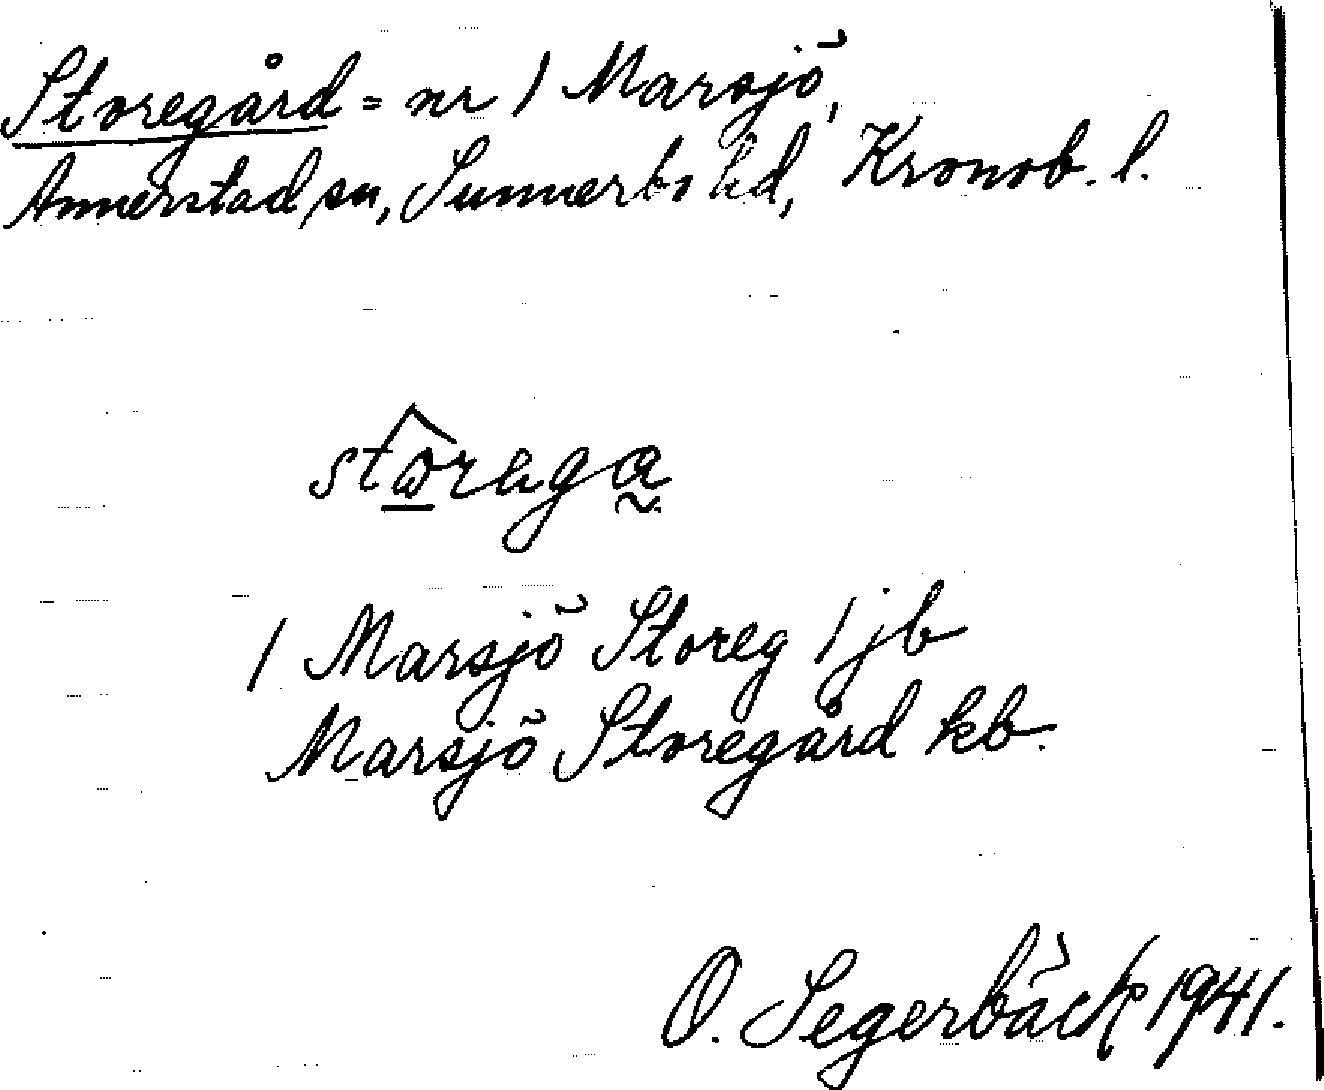 Storegård = nr 1 Marsjö,
Annerstad sn, Sunnerbo hd, Kronob. l.
storega
1 Marsjö Storeg 1 jb
Marsjö Storegård kb.
O. Segerbäck 1941.